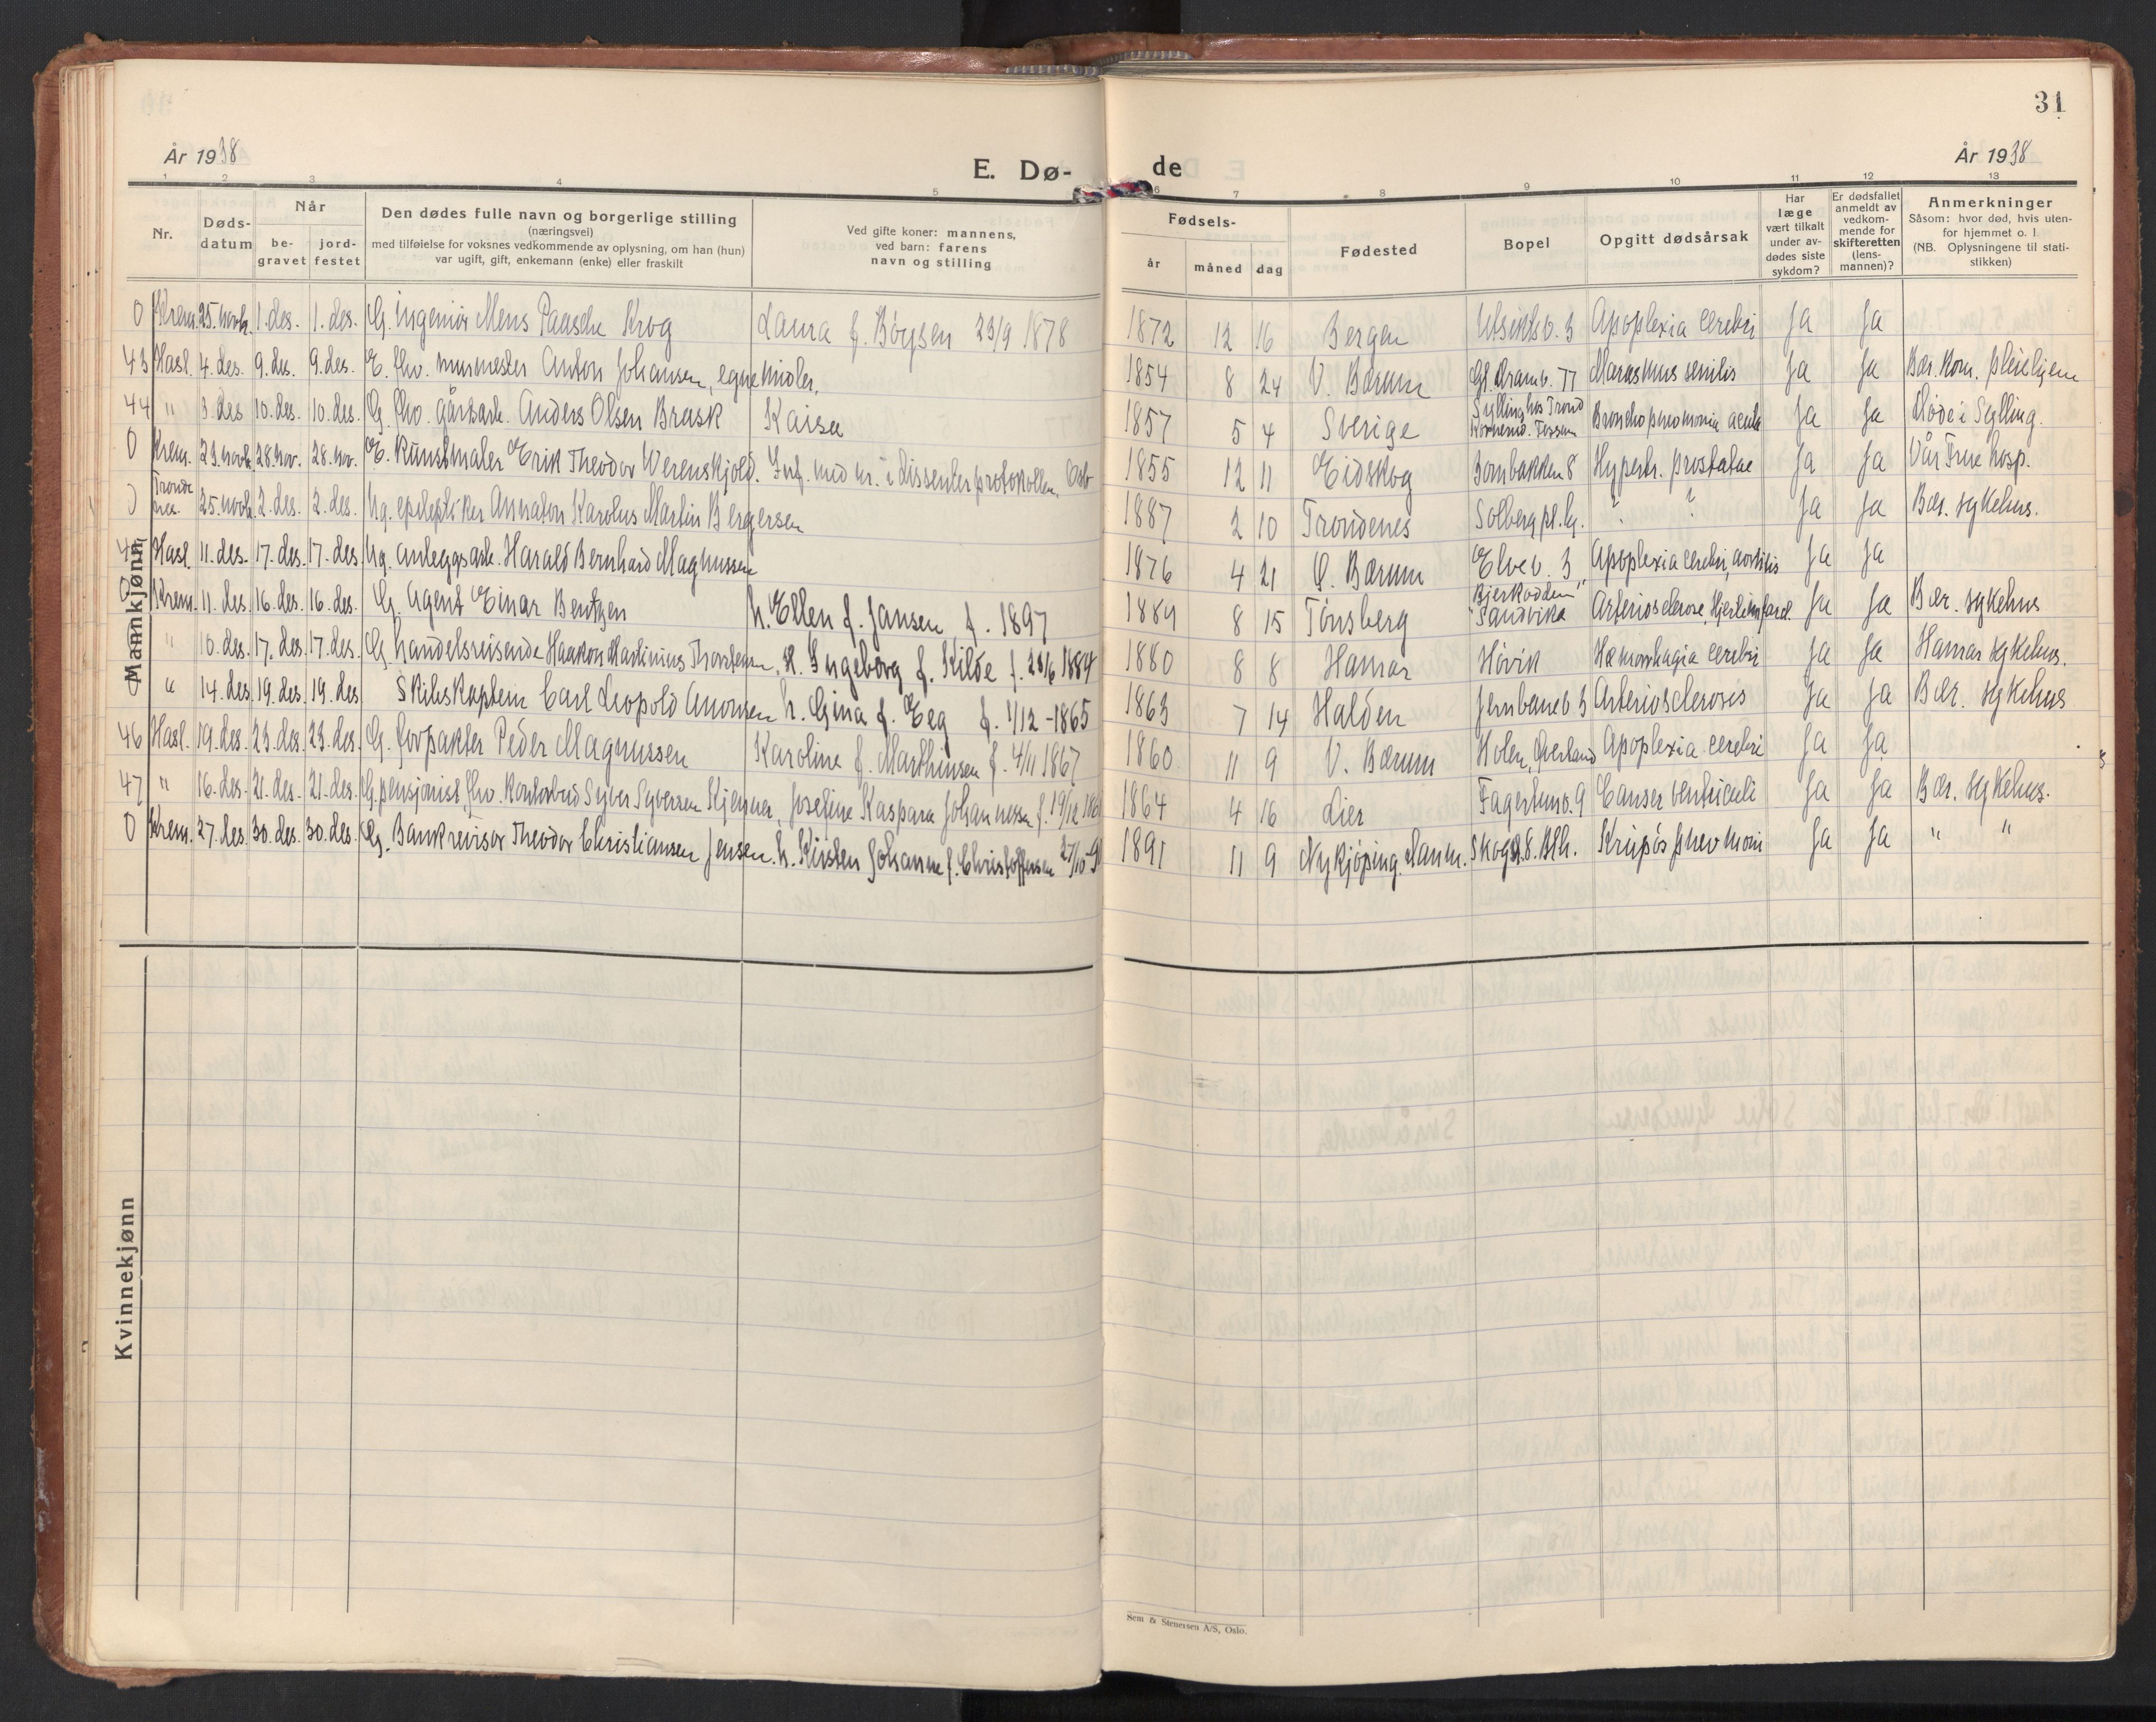 31
År 1938
E. Dø-
de
År 1938
1 2 3 4 5
6 7 8 9 10 11 12 13
Nr.
Døds-
datum
Når
be-
gravet
jord-
festet
Den dødes fulle navn og borgerlige stilling
(næringsvei)
med tilføielse for voksnes vedkommende av oplysning, om han (hun)
var ugift, gift, enkemann (enke) eller fraskilt
Ved gifte koner: mannens,
ved barn: farens
navn og stilling
Fødsels-
år måned dag
Fødested
Bopel
Opgitt dødsårsak
Har
læge
vært tilkalt
under av-
dødes siste
sykdom?
Er dødsfallet
anmeldt av
vedkom-
mende for
skifteretten
(lens-
mannen)?
Anmerkninger
Såsom: hvor død, hvis uten-
for hjemmet o. l.
(NB. Oplysningene til stati-
stikken)
Mannkjønn
0 Krem. 25. novb. 1. des. 1. des. G. Ingeniør Mens Paasche Krog Laura f. Børysen 23/9 1878 1872 12 16 Bergen Utsiktsv. 3 Apoplexia cerebri Ja Ja
43 Hasl. 4. des. 9. des. 9. des. E. fhv. murmester Anton Johansen, egne midler, 1854 8 24 V. Bærum Gl. Dramv. 77 Maraskmus senilis Ja Ja Bær. kom. pleiehjem
44 " 3. des 10. des. 10. des. G. fhv. gårdsarb. Anders Olsen Brask Kaisa 1857 5 4 Sverige Syllinghos Trond Bronchopneomonia acuta Ja Ja Døde i Sylling.
0 Krem. 23. novb. 28. nov. 28. nov. E. Kunstmaler Erik Theodor Werenskjold. Inf. med nr. i dissenterprotokollen, Oslo 1855 12 11 Eidskog Bornbakken 8 Hypertr. prostatae Ja Ja Vår Frue hosp.
0 Tronde 25. novb. 2. des. 2. des. Ug. epileptiker Annaton Karolus Martin Bergersen 1887 2 10 Trondenes Solberg pl. hj. ? ? Ja Ja Bær. sykehus.
Hasl. 11. des. 17. des. 17. des. Ug. anleggsarb. Harald Bernhard Magnussen 1876 4 21 Ø. Bærum Elvev. 3 Apoplexia cerebri, aortitis Ja Ja
0 Krem. 11. des. 16. des. 16. des. G. Agent Einar Bentzen h. Ellen f. Jansen f. 1897 1889 8 15 Tønsberg "Bjerkodden" Sandvika Arteriosclerose, Hjerteinfarct. Ja Ja Bær. sykehus
0 " 10. des. 17. des. 17. des. G. handelsreisende Haakon Martinius Thorstensen, H. Ingeborg f. Kilde f. 23/6 1884 1880 8 8 Hamar Høvik Hæmorrhagia cerebri Ja Ja Hamar sykehus.
0 " 14. des. 19. des. 19. des. Skibskaptein Carl Leopold Amonsen h. Gina f. Eeg f. 1/12 - 1865 1863 7 14 Halden Jernbanev 3 Arteriosclerosis Ja Ja Bær. sykehus
46 Hasl. 19. des. 23. des. 23. des. G. forpakter Peder Magnussen Karoline f. Marthinsen f. 4/11 1867 1860 11 9 V. Bærum Holen, Øverland Apoplexia cerebri Ja Ja
47 " 16. des. 21. des. 21. des. G. pensjonist fhv. Kontorbud Syver Syversen Stjerner, Josefine Kaspara Johannessen f. 19/12 186 1864 4 16 Lier Fagertunv. 9 Canser ventriculi Ja Ja Bær. sykehus.
0 Krem. 27. des. 30. des. 30. des. G. Bankrevisor Theodor Christiansen Jensen. h. Kirsten Johanne f. Christoffersen 27/10-9 1891 11 9 Nykjøping, Danm. Skogv. 8. Blh. Krupøs pnevmoni Ja Ja " "
Kvinnekjønn
Sem & Stenersen A/S, Oslo.